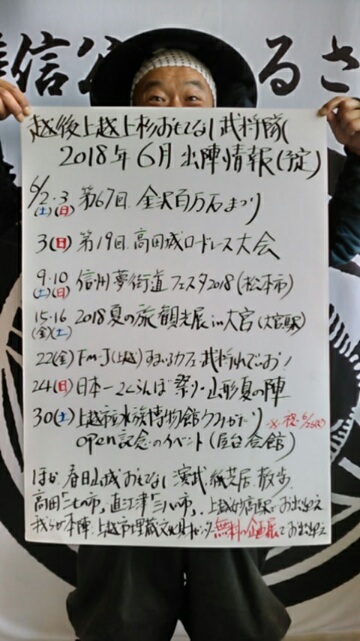 信公 るさ
越後上越上杉おもてなし武将隊
2018年6月出陣情報(予定)
6/2・3 第67回 金沢百万石まつり
(土)(日)
3(日) 第19回高田城ロードレース大会
9・10 信州夢街道フェスタ2018(松本市)
(土)(日)
15・16 2018夏の旅観光展in大宮(大宮駅)
(金)(土)
22(金) FM-J(上越)カフェ武将れでぃお!
24(日) 日本一さくらんぼ祭り・山形夏の陣
30(土) 上越市立水族博物館
open記念のイベント(屋台会館)
ほか 春日山城おもてなし演武 紙芝居 散歩
高田「二・七の市」直江津「三・八の市」、上越妙高駅でお出迎え
我らが本陣、上越市埋蔵文化財センター 無料の企画展でお出迎え